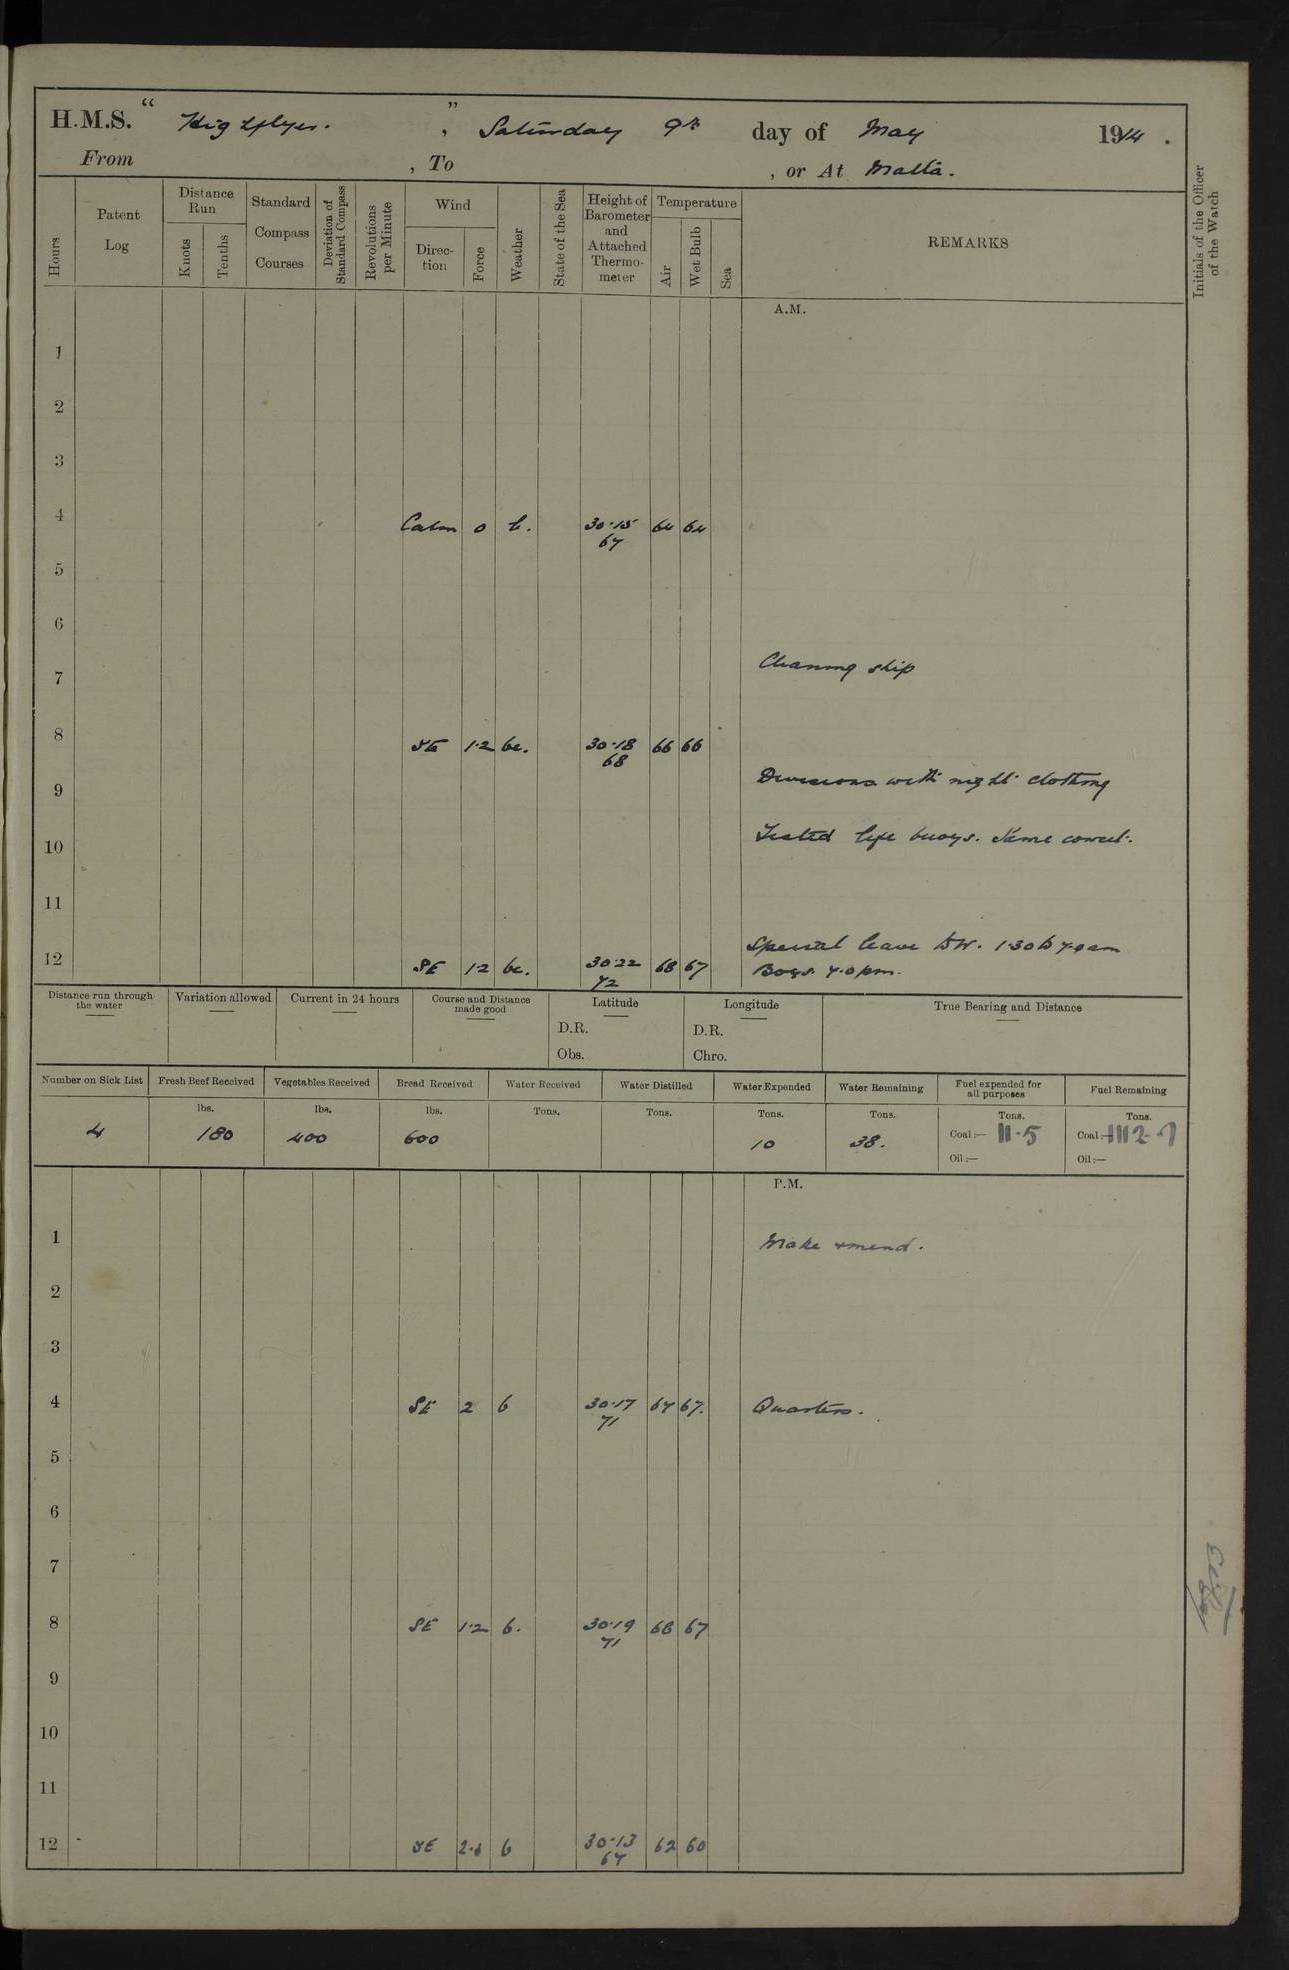 H.M.S. " Highflyer. " , Saturday 9th day of May 1914 .
From , To , or At Malta.
Hours
Patent Log
Distance Run
Knots
Tenths
Standard Compass Courses
Deviation of Standard Compass
Revolutions per Minute
Wind
Direction
Force
Weather
State of the Sea
Height of Barometer and Attached Thermometer
Temperature
Air
Wet Bulb
Sea
REMARKS
Initials of the Officer of the Watch
A.M.
1
2
3
4 Calm 0 b. 30.15 64 64
67
5
6
7 Cleaning ship
8 SE 1.2 bc. 30.18 66 66
68
9 Divisions with night clothing
10 Tested life buoys. Same correct.
11
Special leave 1.30 to 7.0 am
12 SE 1.2 bc. 30.22 68 67 Boys 7.0 pm.
72
Distance run through the water
Variation allowed
Current in 24 hours
Course and Distance made good
Latitude
D.R.
Obs.
Longitude
D.R.
Chro.
True Bearing and Distance
Number on Sick List
4
Fresh Beef Received
lbs.
180
Vegetables Received
lbs.
400
Bread Received
lbs.
600
Water Received
Tons.
Water Distilled
Tons.
Water Expended
Tons.
10
Water Remaining
Tons.
38.
Fuel expended for all purposes
Tons.
Coal:— 11.5
Oil:—
Fuel Remaining
Tons.
Coal:— 1112.7
Oil:—
P.M.
1 Make & mend.
2
3
4 SE 2 b 30.17 67 67. Quarters.
71
5
6
7
8 SE 1.2 b. 30.19 68 67
71
9
10
11
12 SE 2.1 b 30.13 62 60
67